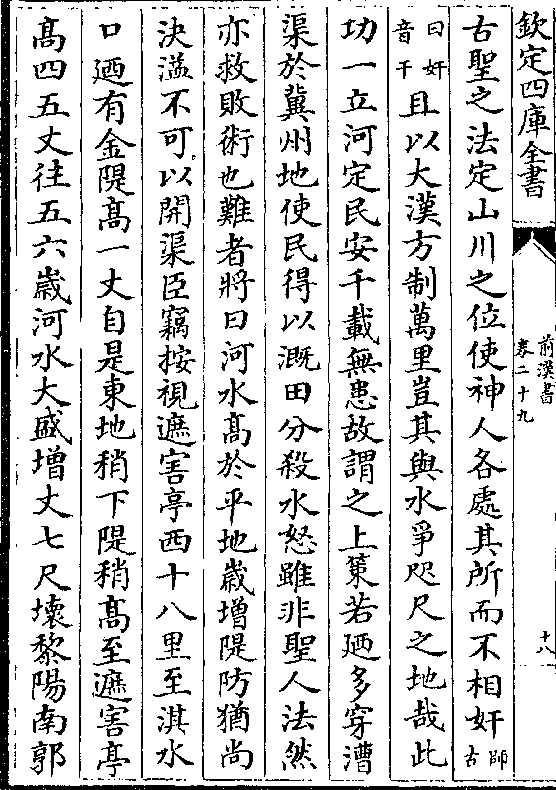 欽定四庫全書
前漢書
卷二十九
十八
古聖之法定山川之位使神人各處其所而不相奸師古
曰奸音干且以大漢方制萬里豈其與水爭咫尺之地哉此
功一立河定民安千載無患故謂之上策若廼多穿漕
渠於冀州地使民得以溉田分殺水怒雖非聖人法然
亦救敗術也難者將曰河水髙於平地嵗增隄防猶尚
決溢不可以開渠臣竊按視遮害亭西十八里至淇水
口廼有金隄髙一丈自是東地稍下隄稍髙至遮害亭
髙四五丈往五六嵗河水大盛增丈七尺壞黎陽南郭